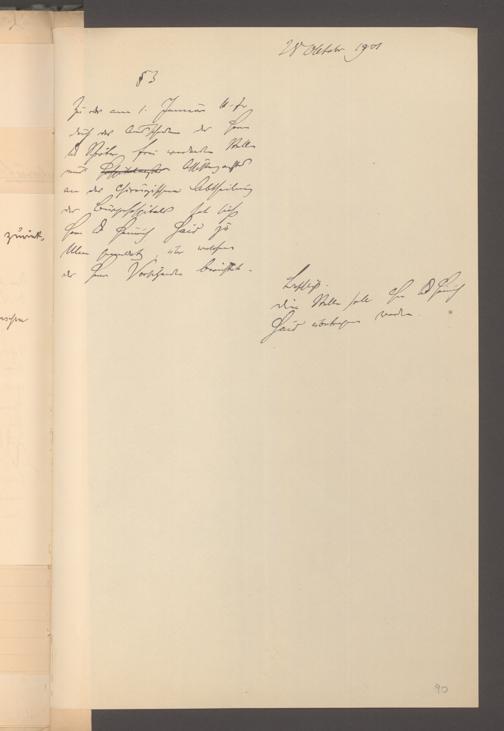 28 Oktobr 1901
§ 3
Zu der am 1. Januar
durch das Ausscheiden des Herrn
Dr frei werdenden Stelle
eines Assistenzarztes
an der Chirurgischen Abtheilung
des Bürgerhospitals hat sich
Herr Dr Heinrich Hais zu
Ulm gemeldet, über welchen
der Herr Vorsitzende berichtet.
Beschluß:
Diese Stelle soll Hn Dr Heinrich
Hais übertragen werden.
zurück,
90